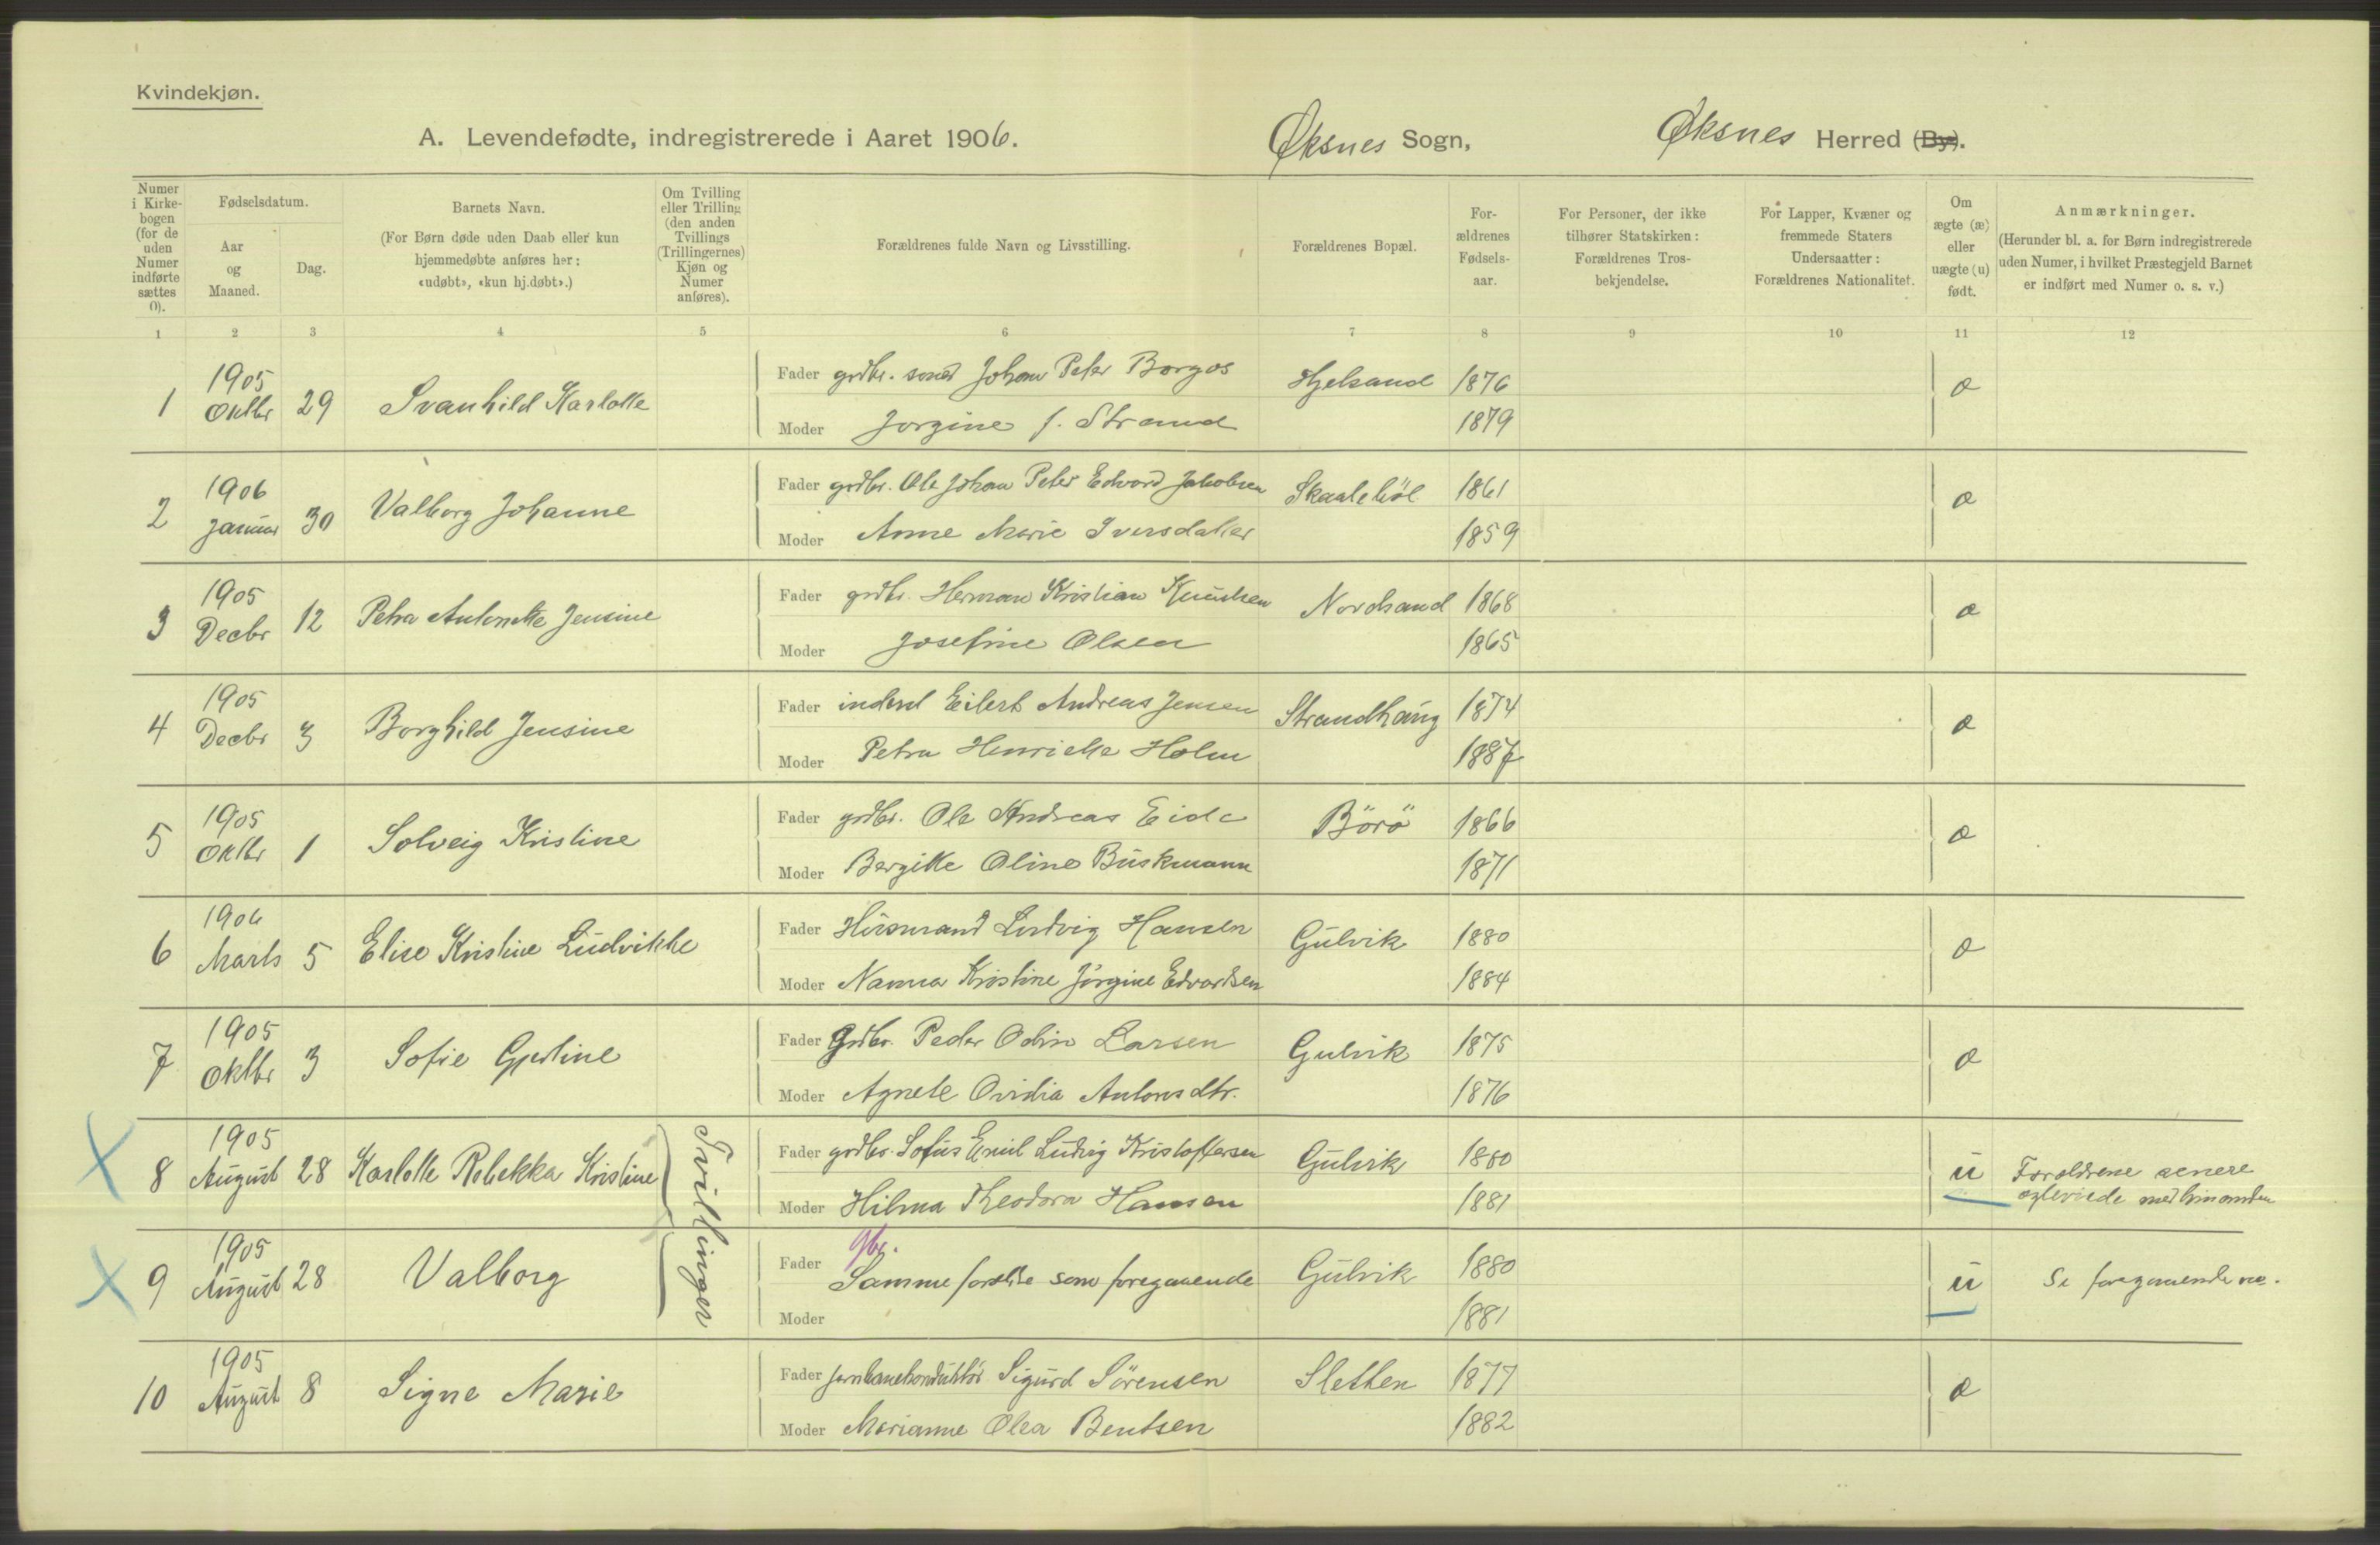 Kvindekjøn.
A. Levendefødte, indregistrerede i Aaret 1906. Øksnes Sogn, Øksnes Herred (By).
Numer i Kirkebogen (for de uden Numer indførte sættes 0).
Fødselsdatum.
Aar og Maaned.
Dag.
Barnets Navn.
(For Børn døde uden Daab eller kun hjemmedøbte anføres her: «udøbt», «kun hj.døbt».)
Om Tvilling eller Trilling (den anden Tvillings (Trillingernes) Kjøn og Numer anføres).
Forældrenes fulde Navn og Livsstilling.
Forældrenes Bopæl.
For-ældrenes Fødsels-aar.
For Personer, der ikke tilhører Statskirken: Forældrenes Tros-bekjendelse.
For Lapper, Kvæner og fremmede Staters Undersaatter: Forældrenes Nationalitet.
Om ægte (æ) eller uægte (u) født.
Anmærkninger.
(Herunder bl. a. for Børn indregistrerede uden Numer, i hvilket Præstegjeld Barnet er indført med Numer o. s. v.)
1 2 3 4 5 6 7 8 9 10 11 12
1 1905 Oktbr 29 Svanhild Karlotte Fader grdbr. sønd Johan Peter Borgos 1876 æ
Moder Jorgine f. Strand 1879
2 1906 Januar 30 Valborg Johanne Fader grdbr. Ole Johan Peter Edvard Jakobsen Skaaleböl 1861 æ
Moder Anne Marie Iversdatter 1859
3 1905 Decbr 12 Petra Antonette Jensine Fader grdbr. Herman Kristian Knudsen Nordsand 1868 æ
Moder Josefine Olsen 1865
4 1905 Decbr 3 Borghild Jensine Fader inderst Eilert Andreas Jensen Strandhaug 1874 æ
Moder Petra Henriette Holm 1887
5 1905 Oktbr 1 Solveig Kristine Fader grdbr. Ole Andreas Eide Börö 1866 æ
Moder Bergitte Oline Buskmann 1871
6 1906 Marts 5 Elise Kristine Ludvikke Fader Husmand Ludvig Hansen Gulvik 1880 æ
Moder Nanna Kristine Jörgine Edvardsen 1884
7 1905 Oktbr 3 Sofie Gjertine Fader Grdbr. Peder Odin Larsen Gulvik 1875 æ
Moder Agnete Ovidia Antonsdtr. 1876
X 8 1905 August 28 Karlotte Rebekka Kristine Tvillinger Fader grdbr. Sofus Emil Ludvig Kristoffersen Gulvik 1880 u Forældrene senere
Moder Hilma Theodora Hansen 1881 egteviede med hinanden
X 9 1905 August 28 Valborg Fader gbr. Samme forældre som foregaaende Gulvik 1880 u Se foregaaende no.
Moder 1881
10 1905 August 8 Signe Marie Fader jernbanekonduktör Sigurd Sörensen Sletten 1877 æ
Moder Marianne Olea Bentsen 1882